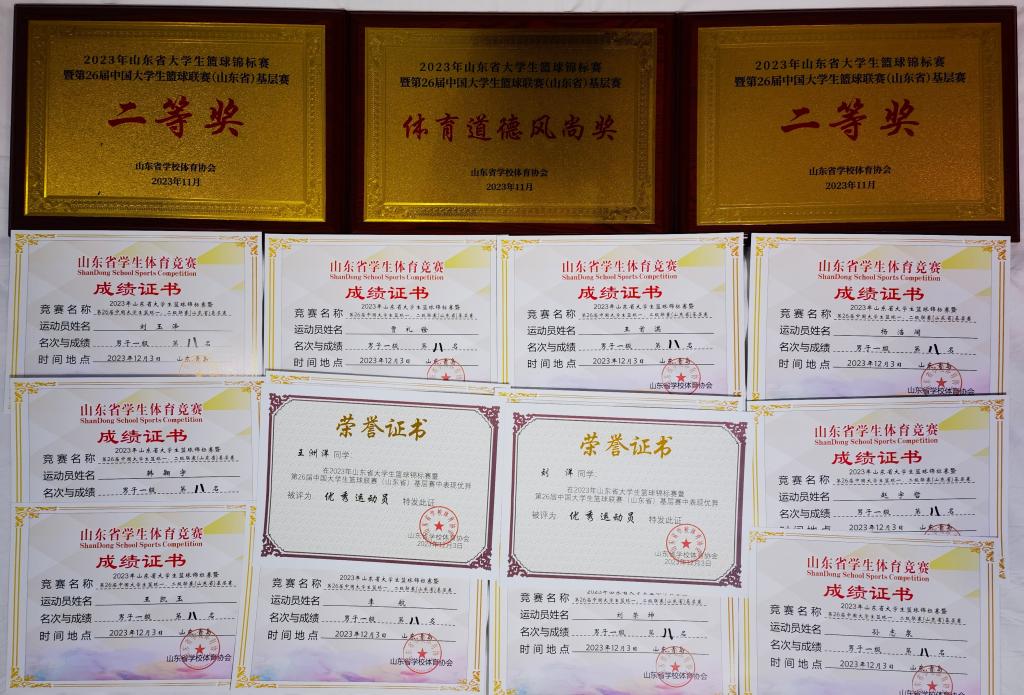 2023年山东省大学生篮球锦标赛
暨第26届中国大学生篮球联赛(山东省)基层赛
二等奖
山东省学校体育协会
2023年11月
2023年山东省大学生篮球锦标赛
暨第26届中国大学生篮球联赛(山东省)基层赛
体育道德风尚奖
山东省学校体育协会
2023年11月
2023年山东省大学生篮球锦标赛
暨第26届中国大学生篮球联赛(山东省)基层赛
二等奖
山东省学校体育协会
2023年11月
山东省学生体育竞赛
ShanDong School Sports Competition
成绩证书
竞赛名称 2023年山东省大学生篮球锦标赛暨
第26届中国大学生篮球一、二级联赛(山东省)基层赛
运动员姓名 刘玉泽
名次与成绩 男子一级 第八名
时间地点 2023年12月3日 山东·青岛
山东省学生体育竞赛
ShanDong School Sports Competition
成绩证书
竞赛名称 2023年山东省大学生篮球锦标赛暨
第26届中国大学生篮球一、二级联赛(山东省)基层赛
运动员姓名 贾礼
名次与成绩 男子一级 第八名
时间地点 2023年12月3日 山东·青岛
山东省学生体育竞赛
ShanDong School Sports Competition
成绩证书
竞赛名称 2023年山东省大学生篮球锦标赛暨
第26届中国大学生篮球一、二级联赛(山东省)基层赛
运动员姓名 王首淇
名次与成绩 男子一级 第八名
时间地点 2023年12月3日 山东·青岛
山东省学校体育协会
山东省学生体育竞赛
ShanDong School Sports Competition
成绩证书
竞赛名称 2023年山东省大学生篮球锦标赛暨
第26届中国大学生篮球一、二级联赛(山东省)基层赛
运动员姓名 杨浩
名次与成绩 男子一级 第八名
时间地点 2023年12月3日 山东·青岛
山东省学校体育协会
山东省学生体育竞赛
ShanDong School Sports Competition
成绩证书
竞赛名称 2023年山东省大学生篮球锦标赛暨
第26届中国大学生篮球一、二级联赛(山东省)基层赛
运动员姓名 韩翔宇
名次与成绩 男子一级 第八名
荣誉证书
王洲洋 同学:
在2023年山东省大学生篮球锦标赛暨
第26届中国大学生篮球联赛(山东省)基层赛中表现优异
被评为 优秀运动员 特发此证
山东省学校体育协会
2023年12月3日
荣誉证书
刘洋 同学:
在2023年山东省大学生篮球锦标赛暨
第26届中国大学生篮球联赛(山东省)基层赛中表现优异
被评为 优秀运动员 特发此证
山东省学校体育协会
2023年12月3日
山东省学生体育竞赛
ShanDong School Sports Competition
成绩证书
竞赛名称 2023年山东省大学生篮球锦标赛暨
第26届中国大学生篮球一、二级联赛(山东省)基层赛
运动员姓名 赵宇哲
名次与成绩 男子一级 第八名
时间地点 2023年12月3日 山东·青岛
山东省学生体育竞赛
ShanDong School Sports Competition
成绩证书
竞赛名称 2023年山东省大学生篮球锦标赛暨
第26届中国大学生篮球一、二级联赛(山东省)基层赛
运动员姓名 王凯玉
名次与成绩 男子一级 第八名
时间地点 2023年12月3日 山东·青岛
山东省学校体育协会
竞赛名称 2023年山东省大学生篮球锦标赛暨
第26届中国大学生篮球一、二级联赛(山东省)基层赛
运动员姓名 李航
名次与成绩 男子一级 第八名
时间地点 2023年12月3日 山东·青岛
山东省学校体育协会
竞赛名称
第26届中国大学生篮球一、二级联赛(山东省)基层赛
运动员姓名 刘荣坤
名次与成绩 男子一级 第八名
时间地点 2023年12月3日 山东·青岛
山东省学校体育协会
山东省学生体育竞赛
ShanDong School Sports Competition
成绩证书
竞赛名称 2023年山东省大学生篮球锦标赛暨
第26届中国大学生篮球一、二级联赛(山东省)基层赛
运动员姓名 孙志泉
名次与成绩 男子一级 第八名
时间地点 2023年12月3日 山东·青岛
山东省学校体育协会